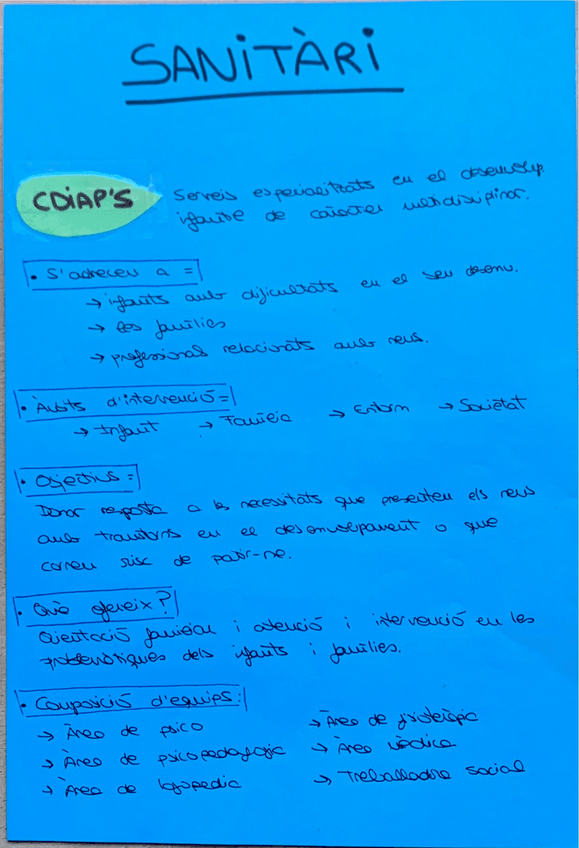 SANITÀRI
CDIAP'S
Serveis especialitzats en el desenvolup.
infantil de caràcter multidisciplinar.
• S'adrecen a =
→ infants amb dificultats en el seu desenv.
→ les famílies
→ professional relacionats amb nens.
• Àmbits d'intervenció =
→ Infant → Família → Entorn → Societat
• Objectius =
Donar resposta a les necessitats que presenten els nens
amb transtorns en el desenvolupament o que
corren risc de patir-ne.
• Què ofereix?
Orientació familiar i atenció i intervenció en les
problemàtiques dels infants i famílies.
• Composició d'equips:
→ Àrea de psico → Àrea de fisioteràpia
→ Àrea de psicopedagogia → Àrea mèdica
→ Àrea de logopedia → Treballadora social